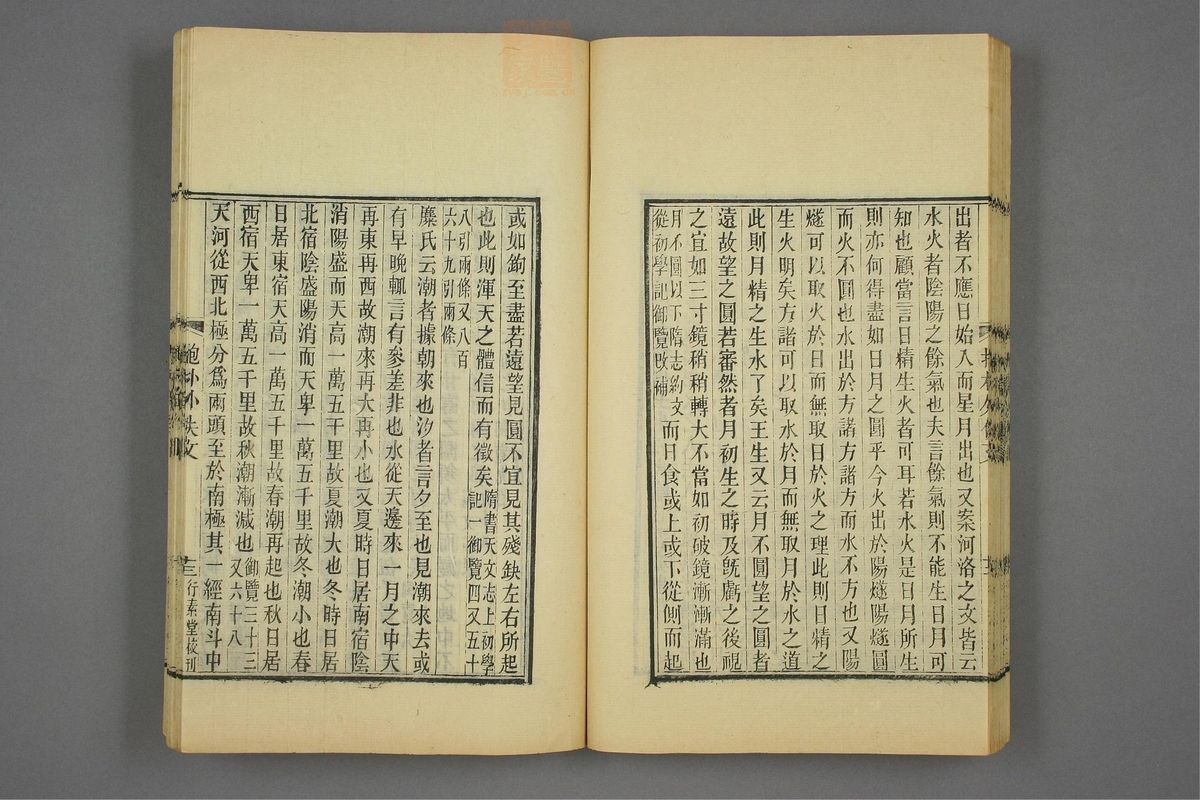 出者不應日始入而星月出也又案河洛之文皆云
水火者陰陽之餘氣也夫言餘氣則不能生日月可
知也顧當言日精生火者可耳若水火是日月所生
則亦何得盡如日月之圓乎今火出於陽燧陽燧圓
而火不圓也水出於方諸方諸方而水不方也又陽
燧可以取火於日而無取日於火之理此則日精之
生火明矣方諸可以取水於月而無取月於水之道
此則月精之生水了矣王生又云月不圓望之圓者
遠故望之圓若審然者月初生之時及旣虧之後視
之宜如三寸鏡稍稍轉大不當如初破鏡漸漸滿也
月不圓以下隋志約文
從初學記御覽改補
而日食或上或下從側而起
或如鉤至盡若遠望見圓不宜見其殘缺左右所起
也此則渾天之體信而有徵矣
隋書天文志上初學
記一御覽四又五十
八引兩條又八百
六十九引兩條
麋氏云潮者據朝來也汐者言夕至也見潮來去或
有早晚輒言有參差非也水從天邊來一月之中天
再東再西故潮來再大再小也又夏時日居南宿陰
消陽盛而天高一萬五千里故夏潮大也冬時日居
北宿陰盛陽消而天卑一萬五千里故冬潮小也春
日居東宿天高一萬五千里故春潮再起也秋日居
西宿天卑一萬五千里故秋潮漸減也
御覽二十三
又六十八
天河從西北極分爲兩頭至於南極其一經南斗中
行素堂校刊